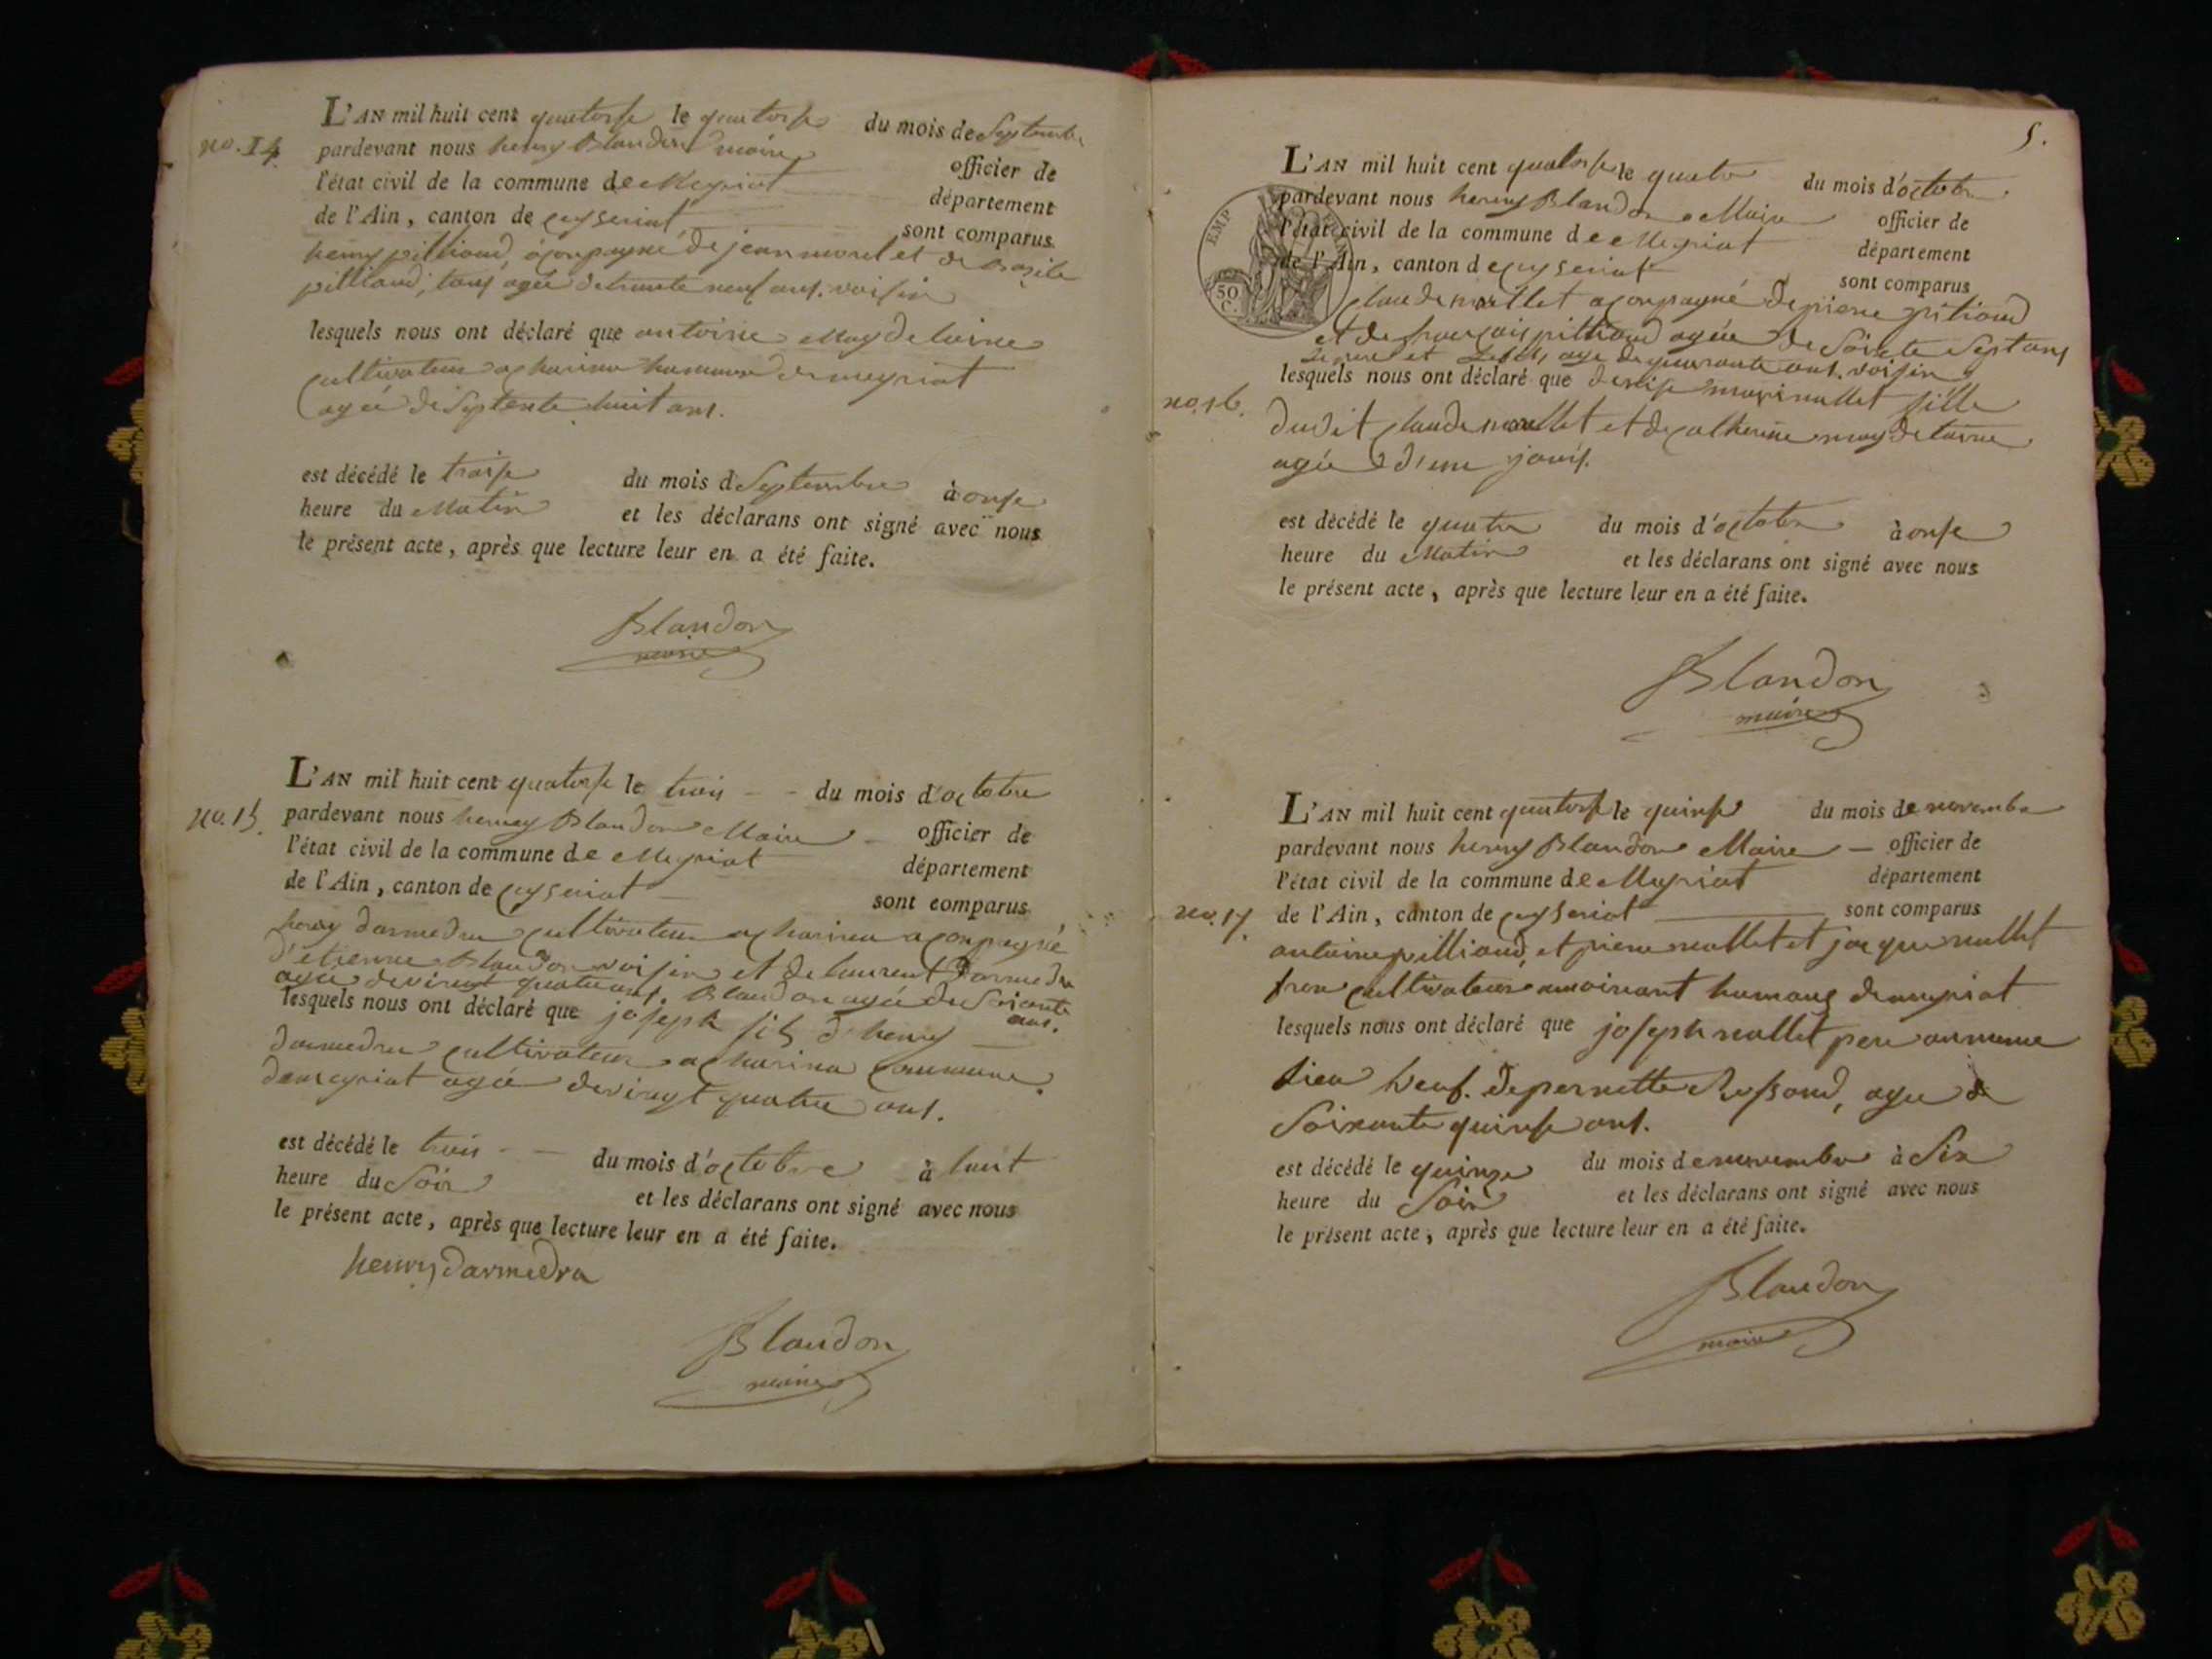 no. 14.
L'AN mil huit cent quatorse le quatorse du mois de Septembre
pardevant nous henry Blandon maire officier de
l'état civil de la commune de Meyriat département
de l'Ain, canton de ceyseriat sont comparus
henry pilliaud, acompagné de jean morel et de
pilliaud, tous agée de trente neuf ans. voisin
lesquels nous ont déclaré que antoine Maydelaine
cultivateur a charina hameau de meyriat
agée de Septente huit ans.
est décédé le treise du mois d Septembre à onse
heure du Matin et les déclarans ont signé avec nous
le présent acte, après que lecture leur en a été faite.
Blandon
maire
no. 15.
L'AN mil huit cent quatorse le trois du mois d'octobre
pardevant nous henry Blandon Maire officier de
l'état civil de la commune de Meyriat département
de l'Ain, canton de ceyseriat sont comparus
henry darmedru cultivateur a charina acompagné
d'etienne Blandon voisin et de laurent Darmedru
agée de vingt quatre ans. Blandon agée de Soixante
ans.
lesquels nous ont déclaré que joseph fils d'henry
darmedru cultivateur a charina Commune
de meyriat agée de vingt quatre ans.
est décédé le trois du mois d'octobre à huit
heure du Soir et les déclarans ont signé avec nous
le présent acte, après que lecture leur en a été faite.
henry darmedru
Blandon
maire
5.
L'AN mil huit cent quatorse le quatre du mois d'octobre
pardevant nous henry Blandon Maire officier de
l'état civil de la commune de Meyriat département
de l'Ain, canton de ceyseriat sont comparus
EMP
50
C.
Claude mollet acompagné de pierre pitioud
et de françois pittioud agée de Soixete Sept ans
le pere et le fils, age de quarante ans. voisin
no. 16.
lesquels nous ont déclaré que denise mollet fille
dudit claude mollet et de catherine maydelaine
agée d'un jours.
est décédé le quatre du mois d'octobre à onse
heure du Matin et les déclarans ont signé avec nous
le présent acte, après que lecture leur en a été faite.
Blandon
maire
L'AN mil huit cent quatorse le quinse du mois de novembre
pardevant nous henry Blandon Maire officier de
l'état civil de la commune de Meyriat département
no. 17.
de l'Ain, canton de ceyseriat sont comparus
antoine pilliaud, et pierre mollet et jacque mollet
frere cultivateur hamaux de meyriat
lesquels nous ont déclaré que joseph mollet pere au meme
lieu veuf. de pernette Russoud, agée de
Soixante quinse ans.
est décédé le quinze du mois de novembre à Six
heure du Soir et les déclarans ont signé avec nous
le présent acte, après que lecture leur en a été faite.
Blandon
maire